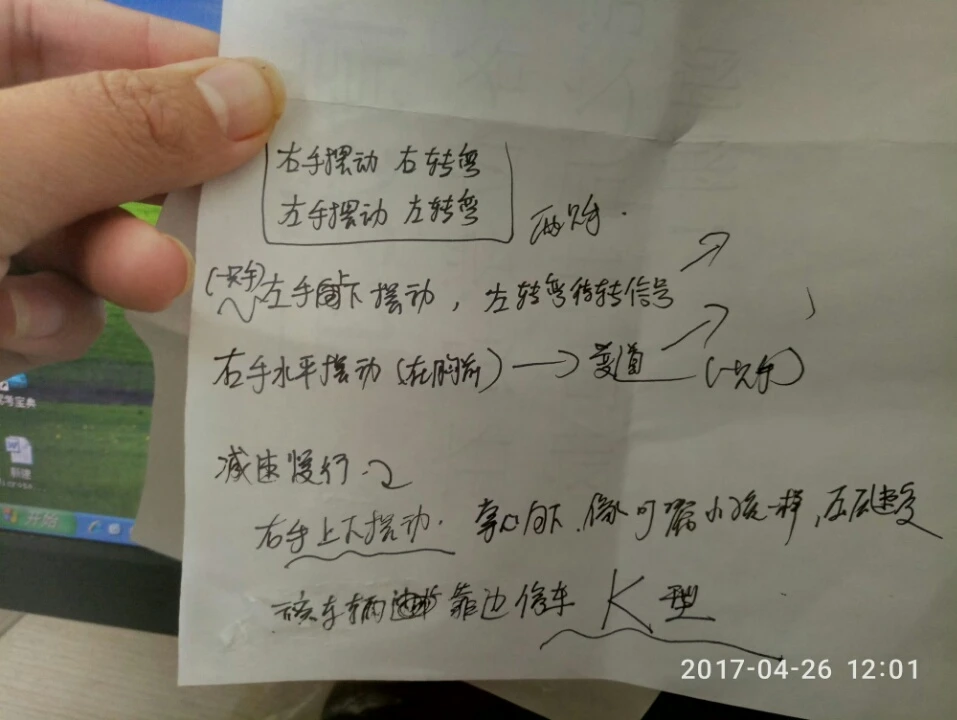 右手摆动 右转弯
左手摆动 左转弯
两只手.
(一只手)左手上下摆动，左转弯待转信号
右手水平摆动(在胸前)→变道 (一只手)
减速慢行.
右手上下摆动. 掌心向下. 像 小孩一样，压压速度
该车辆 靠边停车 K型
开始
2017-04-26 12:01